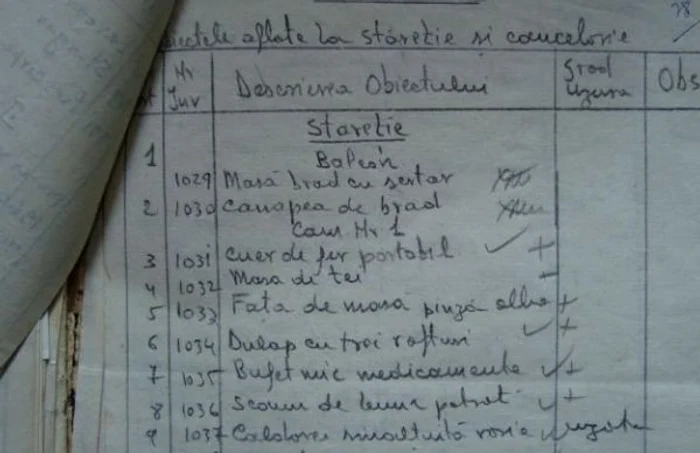 28
ectele aflate la stăreție si cancelarie
Nr Inv Descrierea Obiectului Grad Uzura Obs
Stareție
1 Balcon
1029 Masă brad cu sertar
2 1030 Canapea de brad
Cam Nr 1
3 1031 Cuer de fer portabil ✓ +
4 1032 Masa de tei
5 1033 Fata de masa pînză albă +
6 1034 Dulap cu trei rafturi ✓ +
7 1035 Bufet mic medicamente ✓ +
8 1036 Scaun de lemn patrat ✓ +
9 1037 roșie ✓ uzata